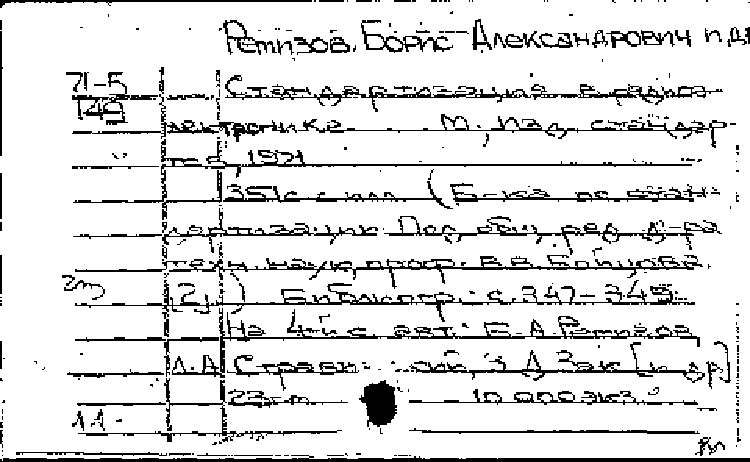 Ремизов, Борис Александрович и др
71-5 Стандартизация в радио-
149
электронике. М., Изд. стандар-
тов, 1971
351 с. с илл. (Б-ка по стан-
дартизации. Под общ. ред. д-ра
техн. наук, проф. В.В. Бойцова.
[2]) Библиогр.: с. 347-349.
На 4-й с. авт.: Б.А. Ремизов,
Л.А. З.Д. Зак [и др]
23 10 000 экз.
11.